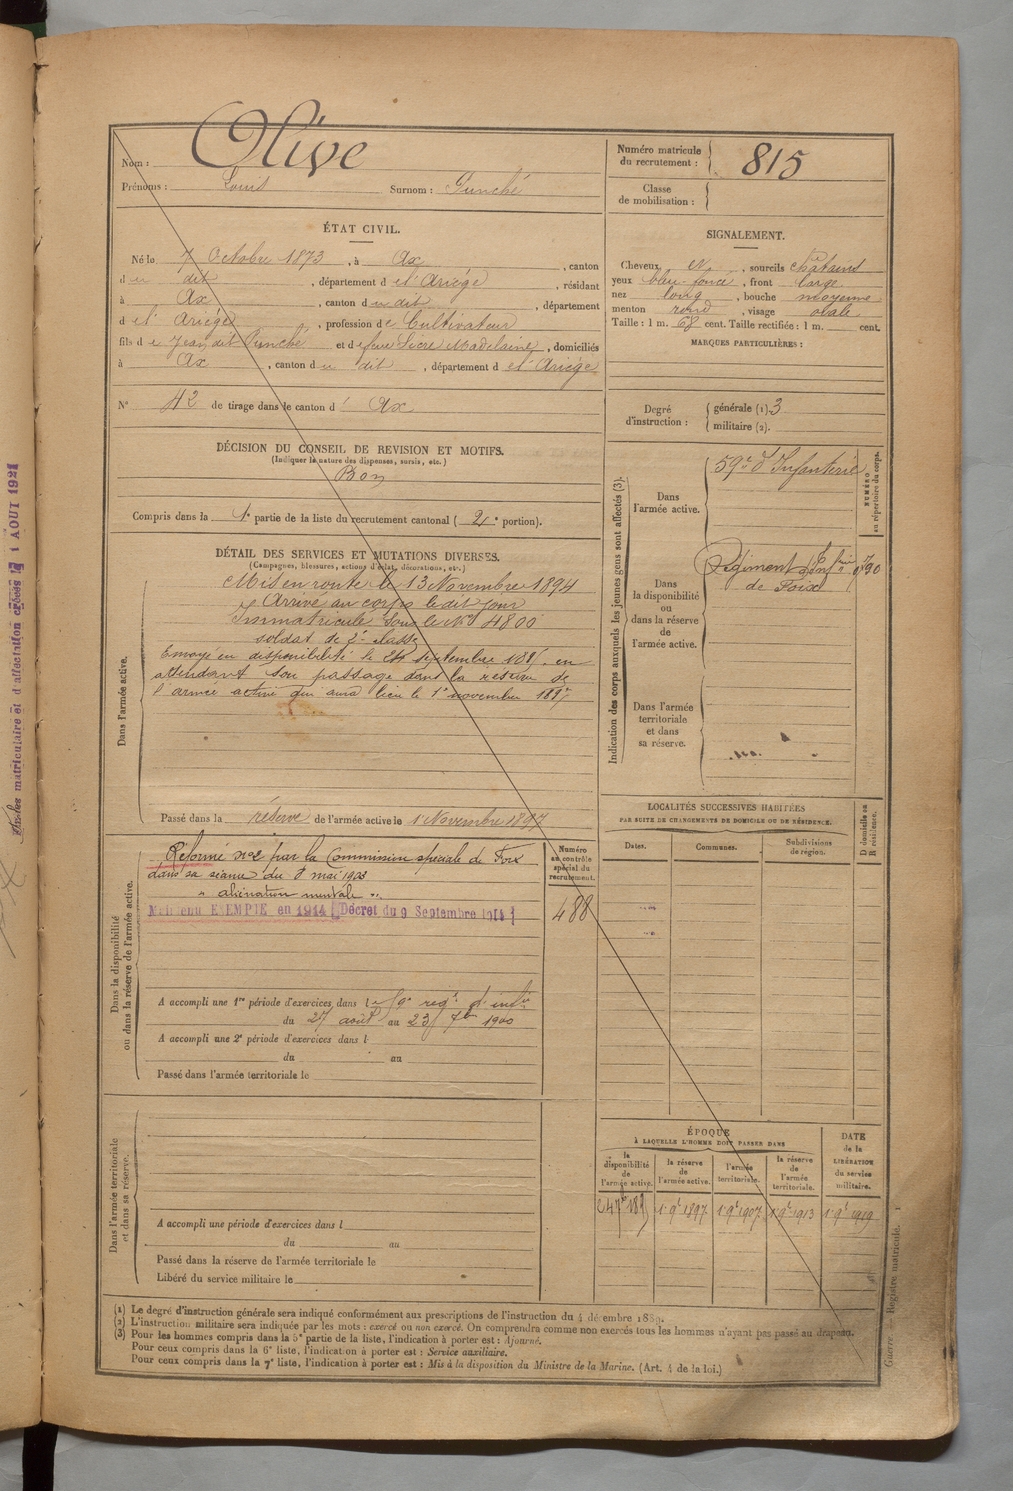 Nom : Olive
Prénoms : Louis Surnom : Punché
Numéro matricule
du recrutement : 815
Classe
de mobilisation :
ÉTAT CIVIL.
Né le 7 Octobre 1873, à Ax, canton
du dit, département de l'Ariége, résidant
à Ax, canton du dit, département
de l' Ariége, profession de Cultivateur
fils de Jean dit Punché et de feue Madelaine, domiciliés
à Ax, canton du dit, département de l'Ariége
N° 42 de tirage dans le canton d' Ax
SIGNALEMENT.
Cheveux et sourcils châtains
yeux bleu foncé, front large
nez long, bouche moyenne
menton rond, visage ovale
Taille : 1 m. 68 cent. Taille rectifiée : 1 m. cent.
MARQUES PARTICULIÈRES :
Degré
d'instruction :
générale (1). 3
militaire (2).
DÉCISION DU CONSEIL DE REVISION ET MOTIFS.
(Indiquer la nature des dispenses, sursis, etc.)
Bon
Compris dans la 1e partie de la liste du recrutement cantonal ( 2e portion).
DÉTAIL DES SERVICES ET MUTATIONS DIVERSES.
(Campagnes, blessures, actions d'éclat, décorations, etc.)
Dans l'armée active.
Mis en route le 13 Novembre 1894
Arrivé au corps le dit jour
Immatriculé sous le No 4800
soldat de 2e classe
Envoyé en disponibilité le septembre en
attendant son passage dans la réserve de
l'armée active qui aura lieu le 1er novembre 1897
Passé dans la réserve de l'armée active le 1 Novembre 1897
Indication des corps auxquels les jeunes gens sont affectés (3).
NUMÉRO
au répertoire du corps.
Dans
l'armée active.
59e d'Infanterie
Dans
la disponibilité
ou
dans la réserve
de
l'armée active.
Régiment d'Infrie
de Foix
Dans l'armée
territoriale
et dans
sa réserve.
LOCALITÉS SUCCESSIVES HABITÉES
PAR SUITE DE CHANGEMENTS DE DOMICILE OU DE RÉSIDENCE.
Dates.
Communes.
Subdivisions
de région.
D domicile ou
R résidence.
Dans la disponibilité
ou dans la réserve de l'armée active.
Numéro
au contrôle
spécial du
recrutement.
488
Réformé no 2 par la Commission spéciale de Foix
dans sa séance du 8 mai 1903
" aliénation mentale "
Maintenu EXEMPTE en 1914 (Décret du 9 Septembre 1914)
A accompli une 1re période d'exercices dans le 59e regt d'infie
du 27 août au 23 7bre 1900
A accompli une 2e période d'exercices dans l
du au
Passé dans l'armée territoriale le
Dans l'armée territoriale
et dans sa réserve.
A accompli une période d'exercices dans l
du au
Passé dans la réserve de l'armée territoriale le
Libéré du service militaire le
ÉPOQUE
À LAQUELLE L'HOMME DOIT PASSER DANS
la
disponibilité
de
l'armée active.
la réserve
de
l'armée active.
l'armée
territoriale.
la réserve
de
l'armée
territoriale.
DATE
de la
LIBÉRATION
du service
militaire.
1 9e 1897 1 9e 1907 1 9e 1913 1 9e 1919
(1) Le degré d'instruction générale sera indiqué conformément aux prescriptions de l'instruction du 4 décembre 1889.
(2) L'instruction militaire sera indiquée par les mots : exercé ou non exercé. On comprendra comme non exercés tous les hommes n'ayant pas passé au drapeau.
(3) Pour les hommes compris dans la 5e partie de la liste, l'indication à porter est : Ajourné.
Pour ceux compris dans la 6e liste, l'indication à porter est : Service auxiliaire.
Pour ceux compris dans la 7e liste, l'indication à porter est : Mis à la disposition du Ministre de la Marine. (Art. 4 de la loi.)
Guerre. — Registre matricule. 1
matriculaire et d'affectation créées le 1 AOUT 1921